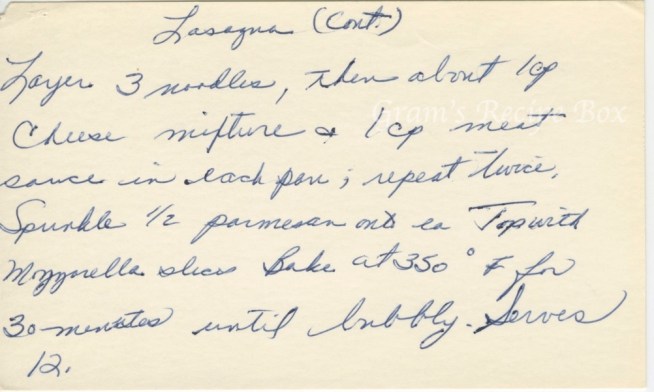 Lasagna (Cont.)
Layer 3 noodles, then about 1 cp
Gram's Recipe Box
Cheese mixture & 1 cp meat
sauce in each pan; repeat twice.
Sprinkle 1/2 parmesan onto ea Top with
Mozzarella slices Bake at 350° F for
30 minutes until bubbly. Serves
12.